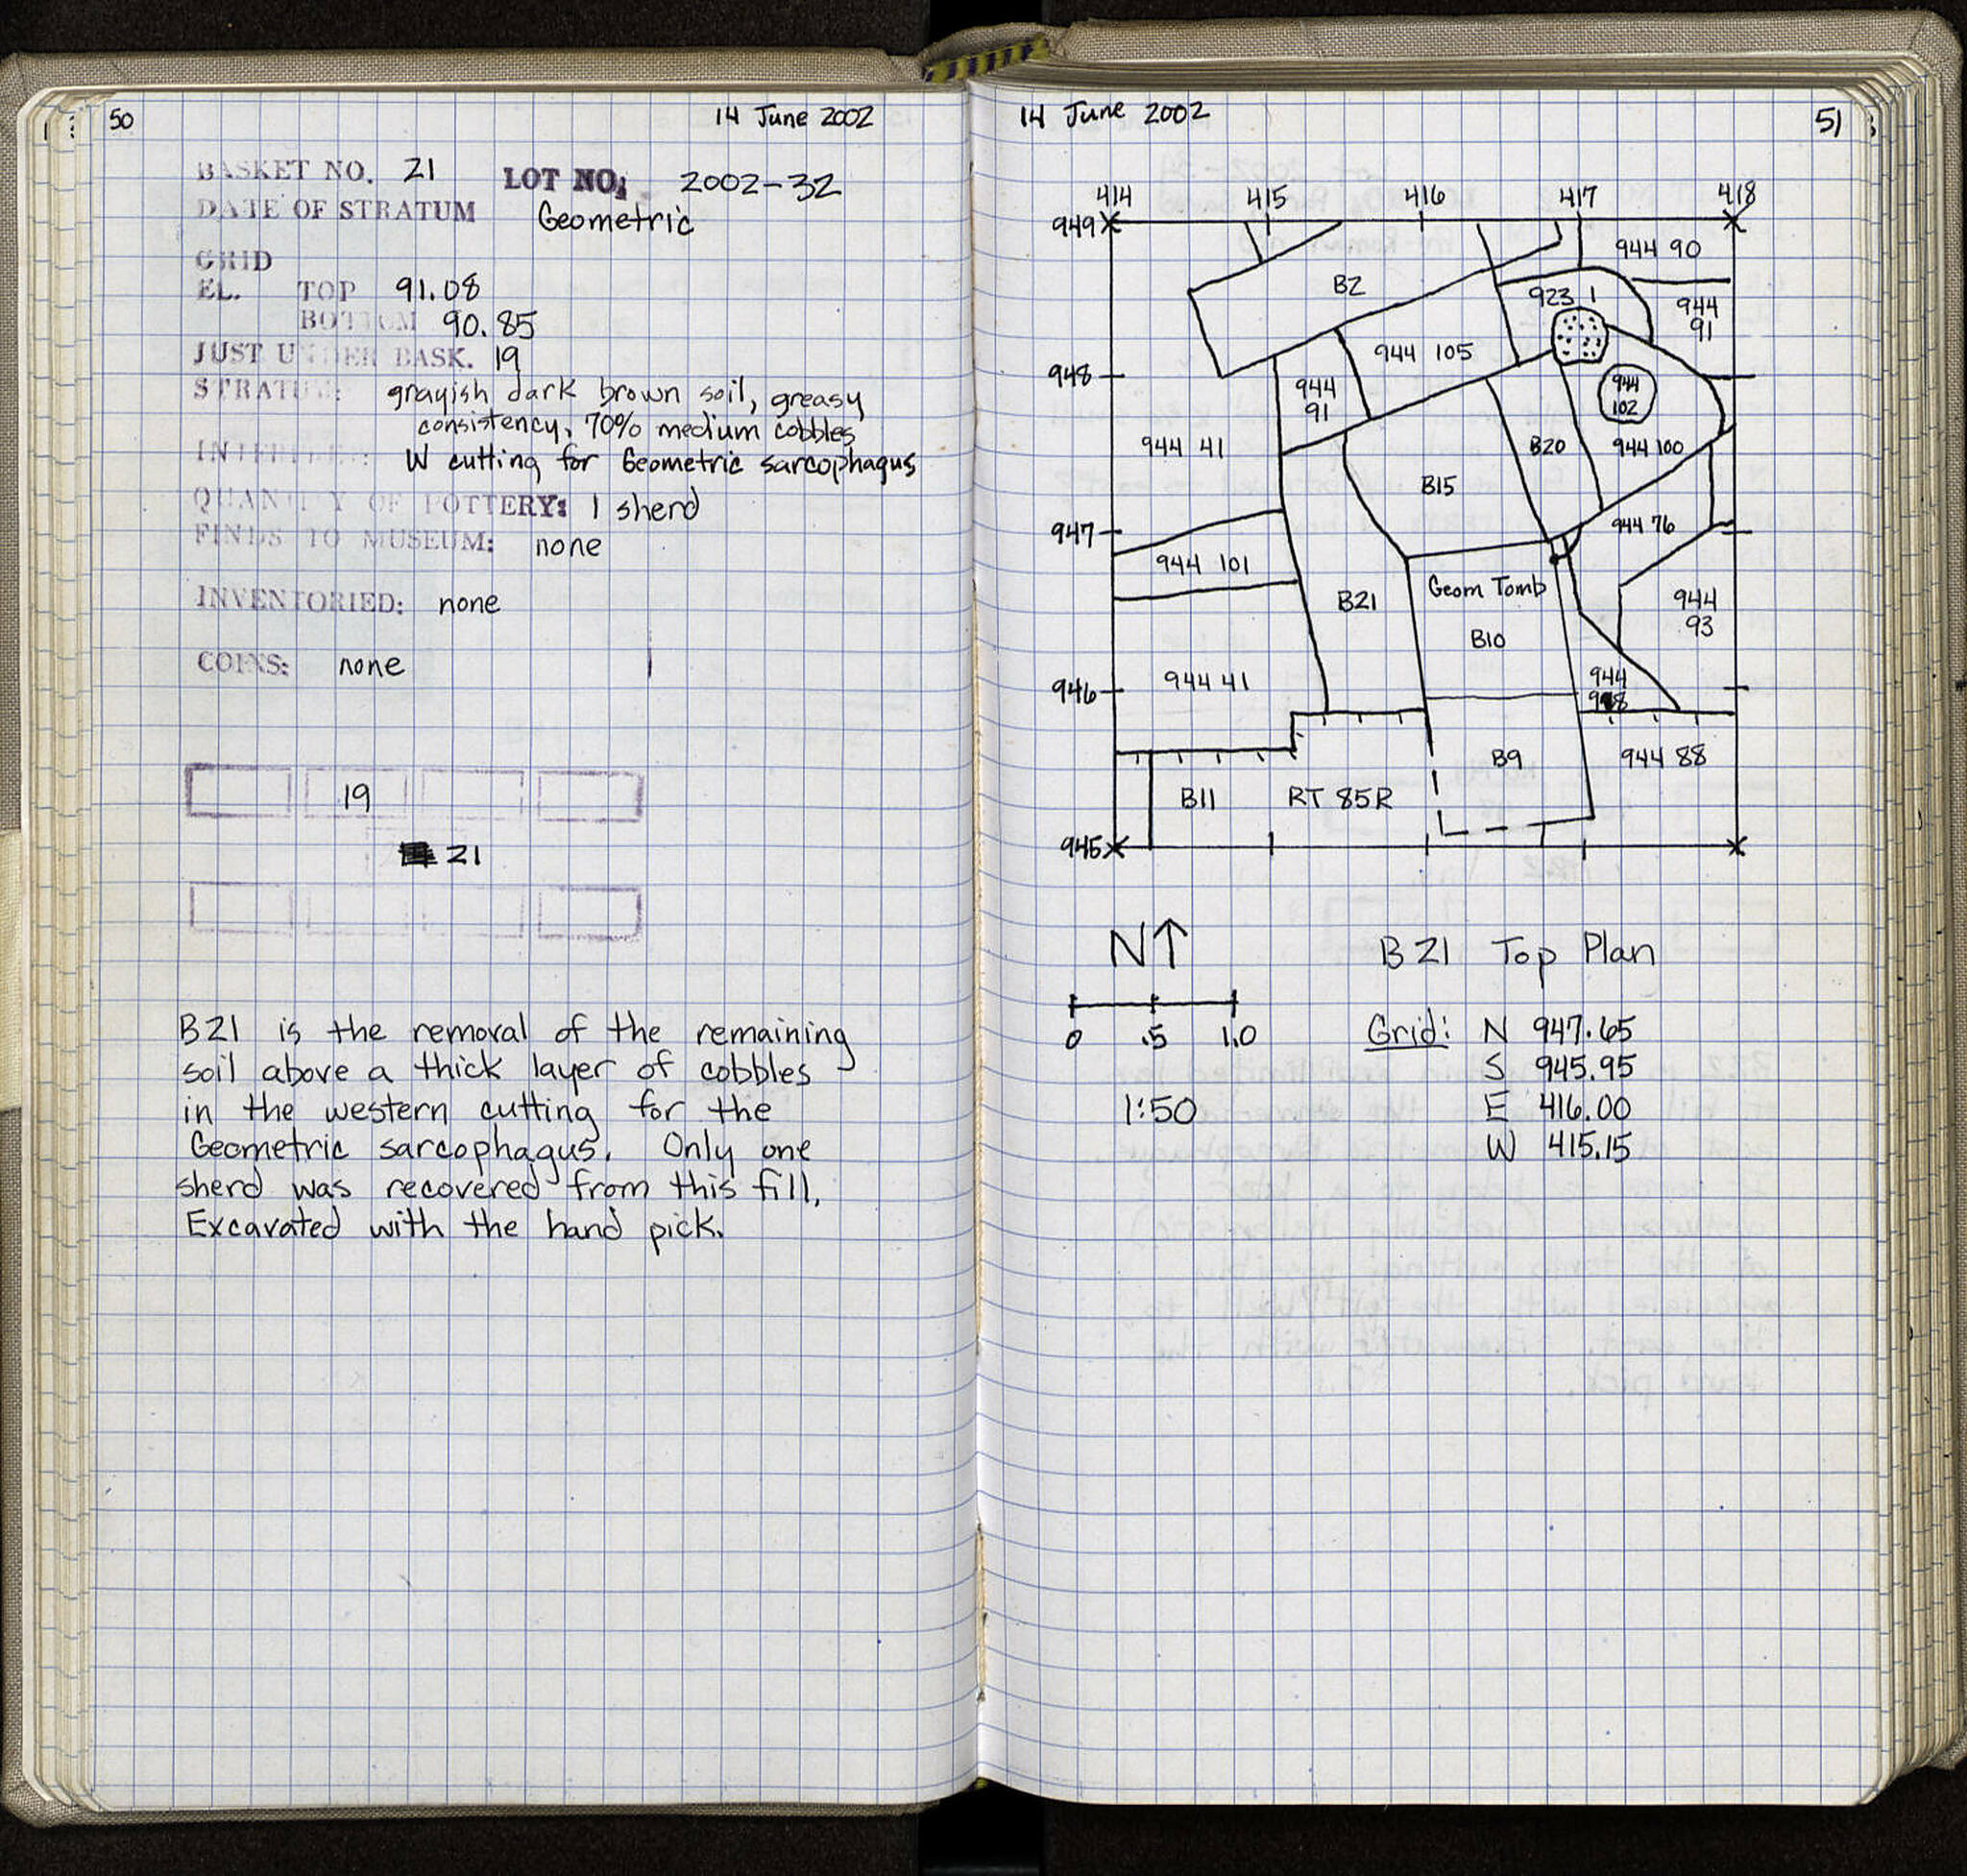 50
14 June 2002
BASKET NO. 21 LOT NO. 2002-32
DATE OF STRATUM Geometric
GRID
EL. TOP 91.08
BOTTOM 90.85
JUST UNDER BASK. 19
STRATUM: grayish dark brown soil, greasy
consistency, 70% medium cobbles
W cutting for Geometric sarcophagus
QUANTITY OF POTTERY: 1 sherd
FINDS TO MUSEUM: none
INVENTORIED: none
COINS: none
19
21
B21 is the removal of the remaining
soil above a thick layer of cobbles
in the western cutting for the
Geometric sarcophagus. Only one
sherd was recovered from this fill.
Excavated with the hand pick.
14 June 2002
51
414 415 416 417 418
949
944 90
B2
923 1
944
91
944 105
948
944
91
944
102
944 41
B20
944 100
B15
947
944 76
944 101
Geom Tomb
B21
944
93
B10
946
944 41
944
98
B9
944 88
B11
RT 85R
945
N↑
B21 Top Plan
0 .5 1.0
Grid: N 947.65
S 945.95
1:50
E 416.00
W 415.15